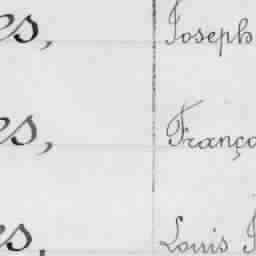 es, Joseph
es, França
es, Louis